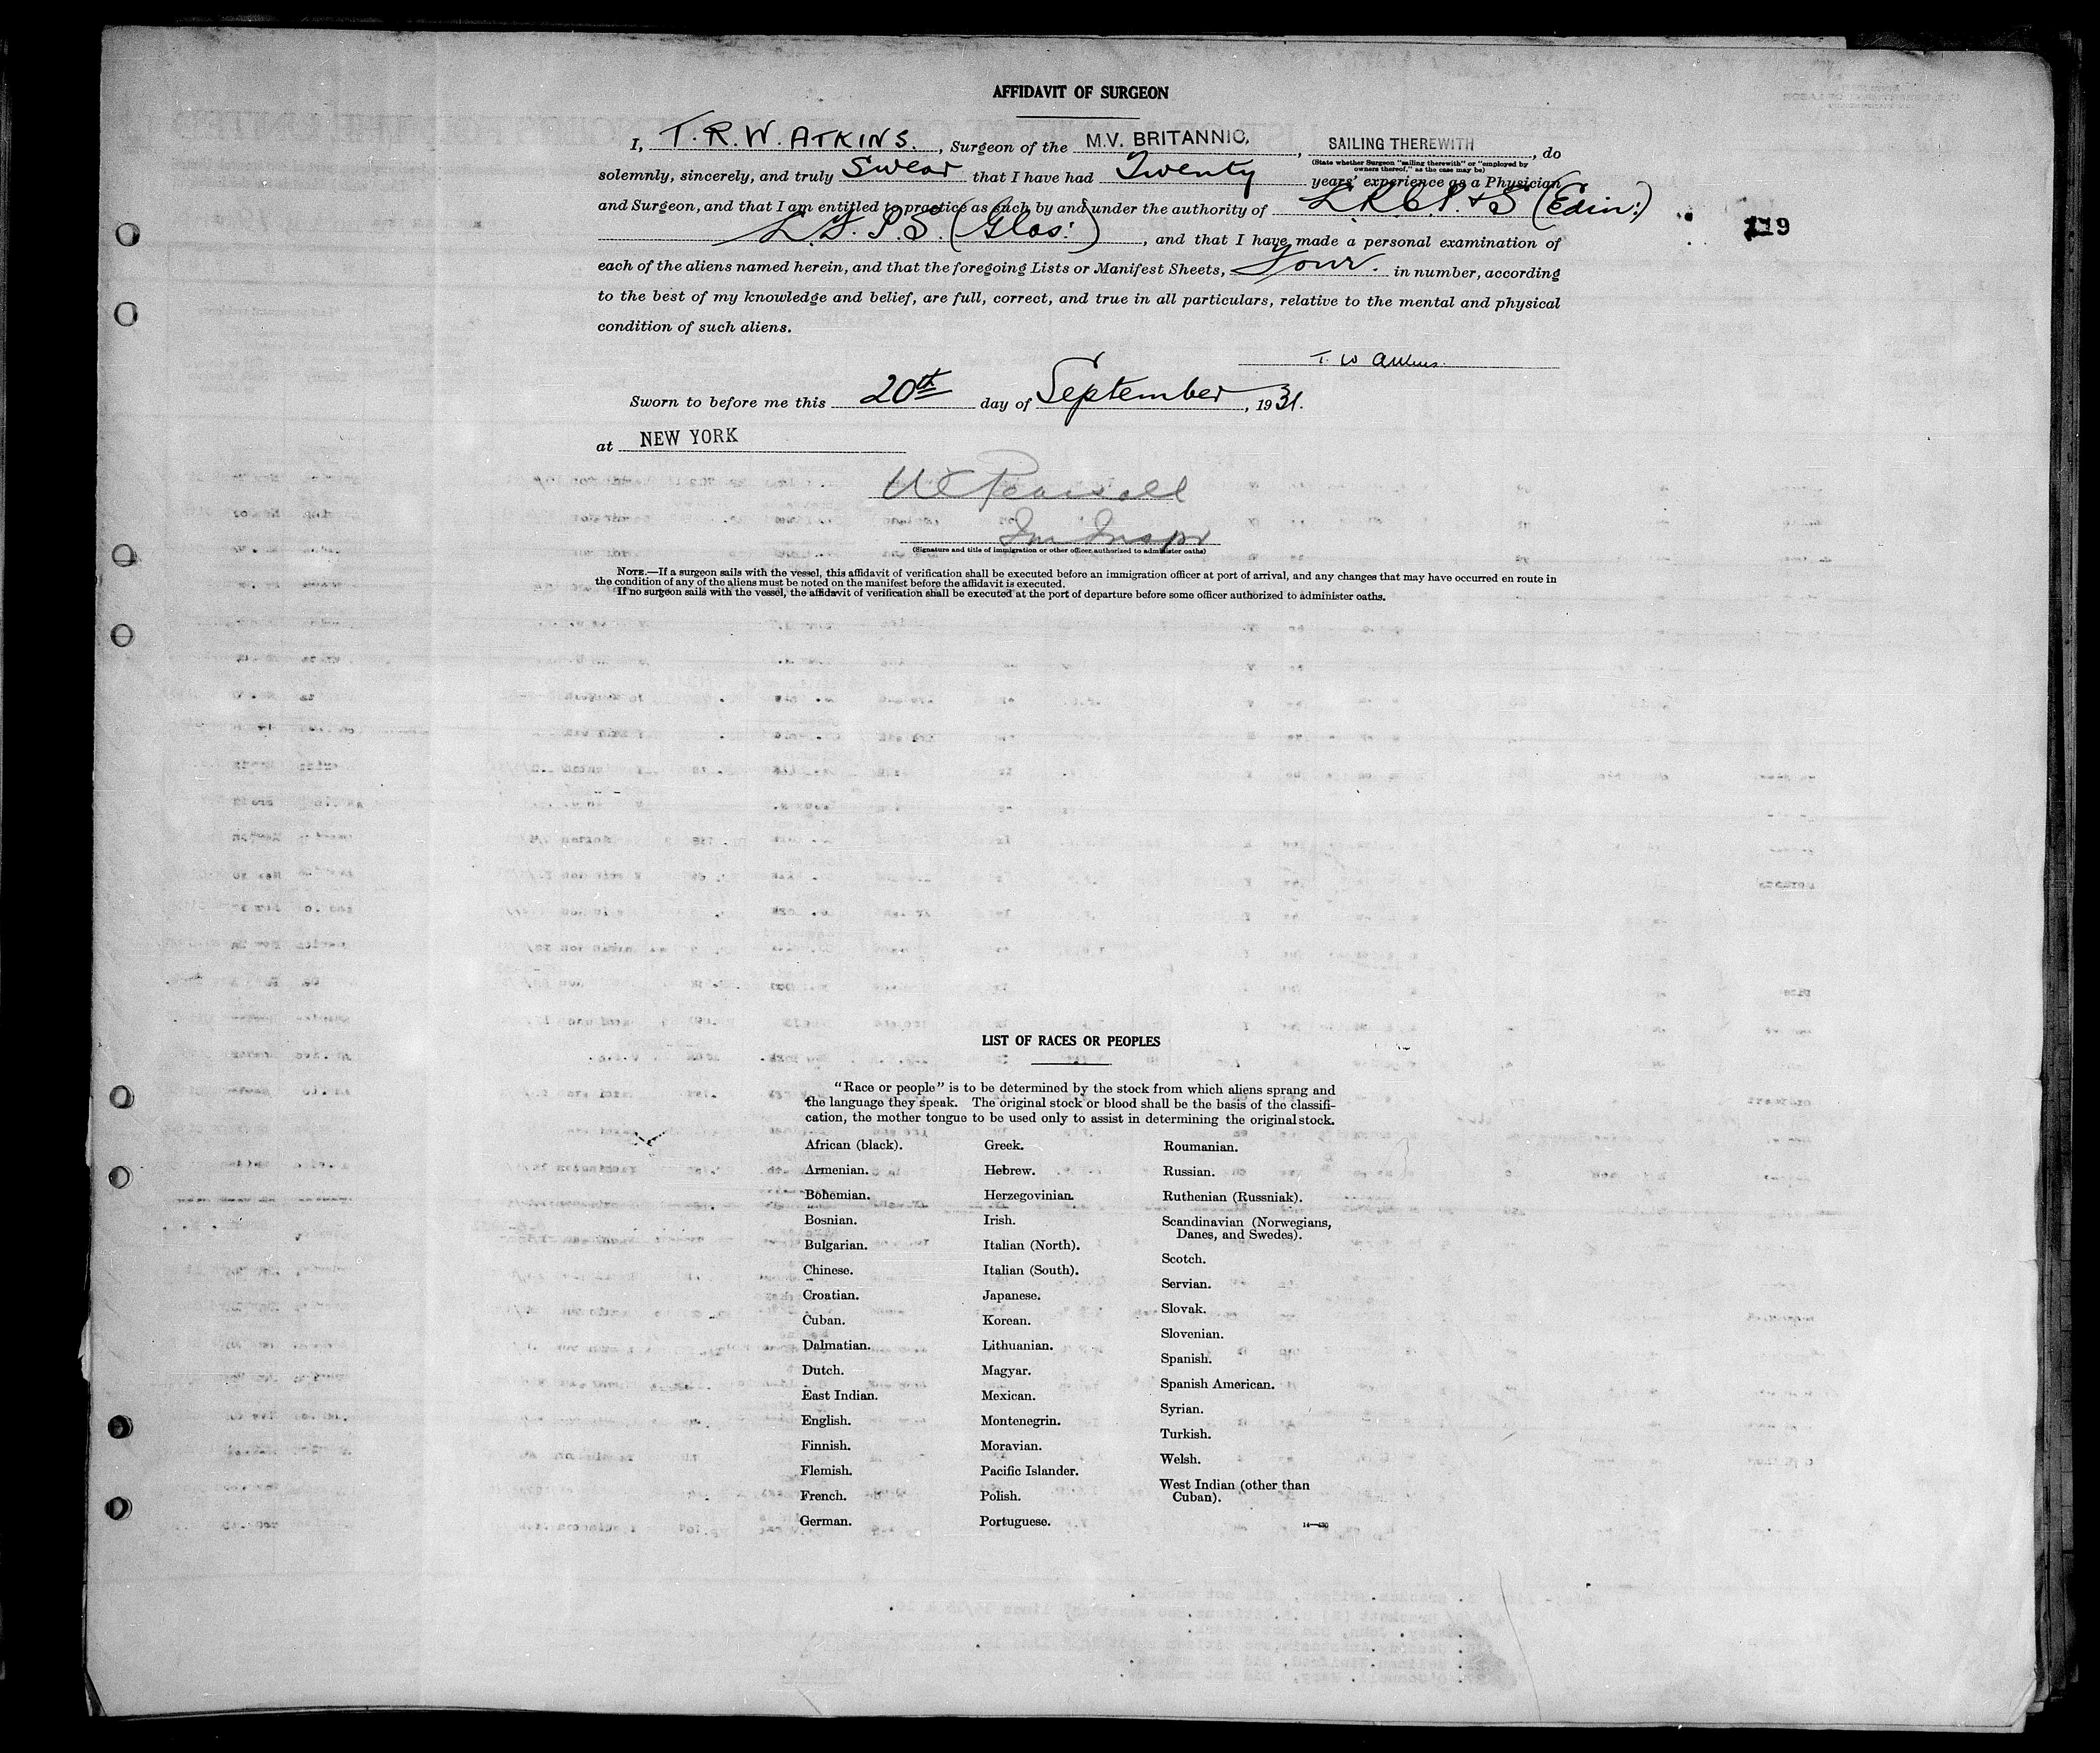 AFFIDAVIT OF SURGEON
I, T. R. W. ATKINS., Surgeon of the M.V. BRITANNIC, SAILING THEREWITH, do
(State whether Surgeon "sailing therewith" or "employed by
owners thereof," as the case may be)
solemnly, sincerely, and truly Swear that I have had Twenty years' experience as a Physician
and Surgeon, and that I am entitled to practice as such by and under the authority of L.R.C.P. & S (Edin:)
119
L. F. P. S. (Glas:), and that I have made a personal examination of
each of the aliens named herein, and that the foregoing Lists or Manifest Sheets, Four. in number, according
to the best of my knowledge and belief, are full, correct, and true in all particulars, relative to the mental and physical
condition of such aliens.
T. W Atkins.
Sworn to before me this 20th day of September, 1931.
at NEW YORK
Im Inspr
(Signature and title of immigration or other officer authorized to administer oaths)
NOTE.—If a surgeon sails with the vessel, this affidavit of verification shall be executed before an immigration officer at port of arrival, and any changes that may have occurred en route in
the condition of any of the aliens must be noted on the manifest before the affidavit is executed.
If no surgeon sails with the vessel, the affidavit of verification shall be executed at the port of departure before some officer authorized to administer oaths.
LIST OF RACES OR PEOPLES
"Race or people" is to be determined by the stock from which aliens sprang and
the language they speak. The original stock or blood shall be the basis of the classifi-
cation, the mother tongue to be used only to assist in determining the original stock.
African (black).
Armenian.
Bohemian.
Bosnian.
Bulgarian.
Chinese.
Croatian.
Cuban.
Dalmatian.
Dutch.
East Indian.
English.
Finnish.
Flemish.
French.
German.
Greek.
Hebrew.
Herzegovinian.
Irish.
Italian (North).
Italian (South).
Japanese.
Korean.
Lithuanian.
Magyar.
Mexican.
Montenegrin.
Moravian.
Pacific Islander.
Polish.
Portuguese.
Roumanian.
Russian.
Ruthenian (Russniak).
Scandinavian (Norwegians,
Danes, and Swedes).
Scotch.
Servian.
Slovak.
Slovenian.
Spanish.
Spanish American.
Syrian.
Turkish.
Welsh.
West Indian (other than
Cuban).